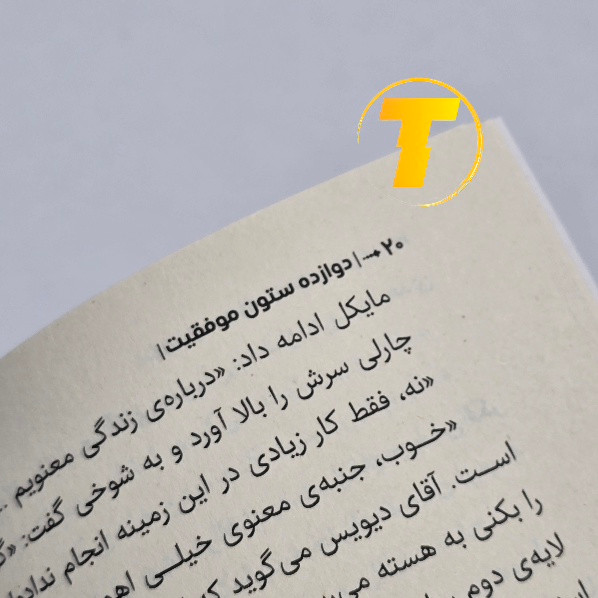 T
۲۰ → | دوازده ستون موفقیت |
مایکل ادامه داد: «درباره‌ی زندگی معنویم ...
چارلی سرش را بالا آورد و به شوخی گفت: «
«نه، فقط کار زیادی در این زمینه انجام
«خوب، جنبه‌ی معنوی خیلی
است. آقای دیویس می‌گوید
را بکنی به هسته
لایه‌ی دوم